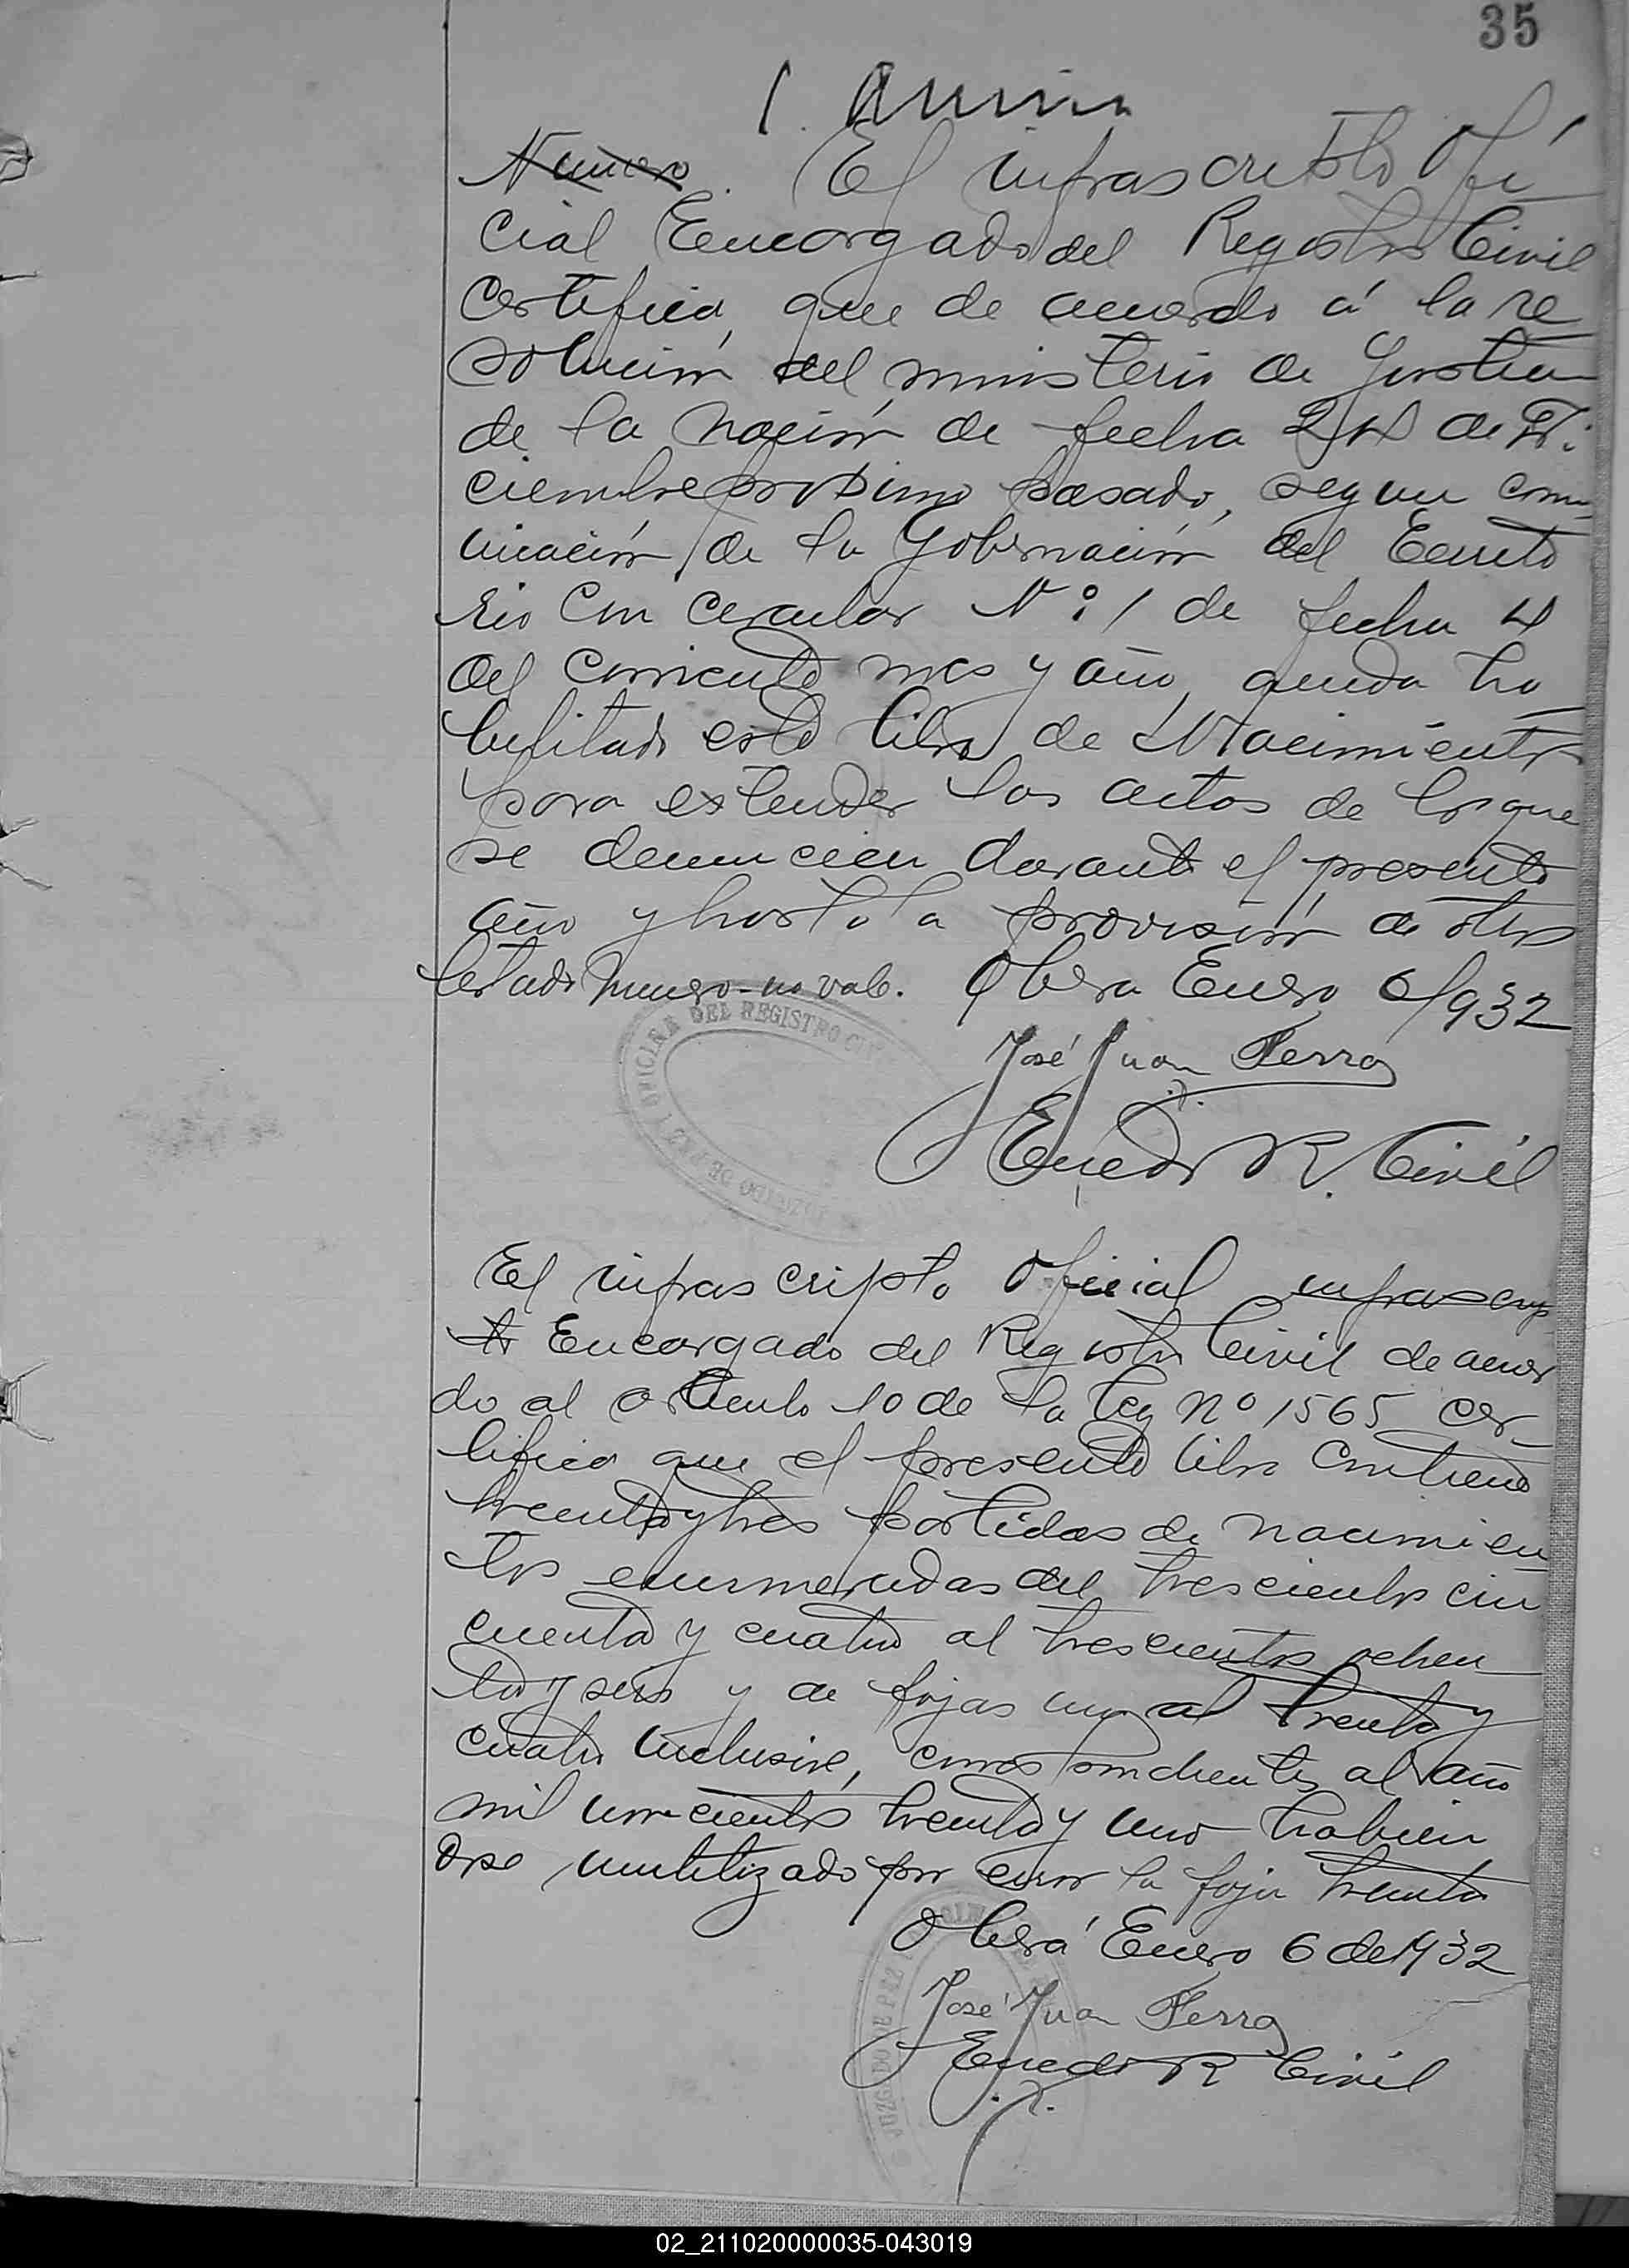 35
Numero. El infrascripto Ofi
cial Encargado del Registro Civil
Certifica, que de acuerdo á la re
solucion del ministerio de Justicia
de la nación de fecha 24 de Di
ciembre proximo pasado, segun comu
nicación de la Gobernación del Territo
rio con cercular Nº 1 de fecha 4
del corriente mes y año, queda ha
bilitado este libro de Nacimientos
para extender las actas de los que
se denuncien durante el presente
año y hasta la provisión de otros
testado Numero-no vale. Obera Enero 6/932
José Juan Ferra
Encdo R. Civil
OFICINA DEL REGISTRO CIVIL
JUZGADO DE PAZ
El infrascripto Oficial infrascrip
to Encargado del Registro Civil de acuer
do al articulo 10 de la ley Nº 1565 cer
tifica que el presente libro contiene
treinta y tres partidas de nacimien
tos enumeradas del trescientos cin
cuenta y cuatro al trescientos ochen
ta y seis y de fojas uno al treinta y
cuatro inclusive, correspondientes al año
mil novecientos treinta y uno habien
dose inutilizado por error la foja treinta
Oberá Enero 6 de 1932
José Juan Ferra
Encdo R Civil
JUZGADO DE PAZ
02_211020000035-043019